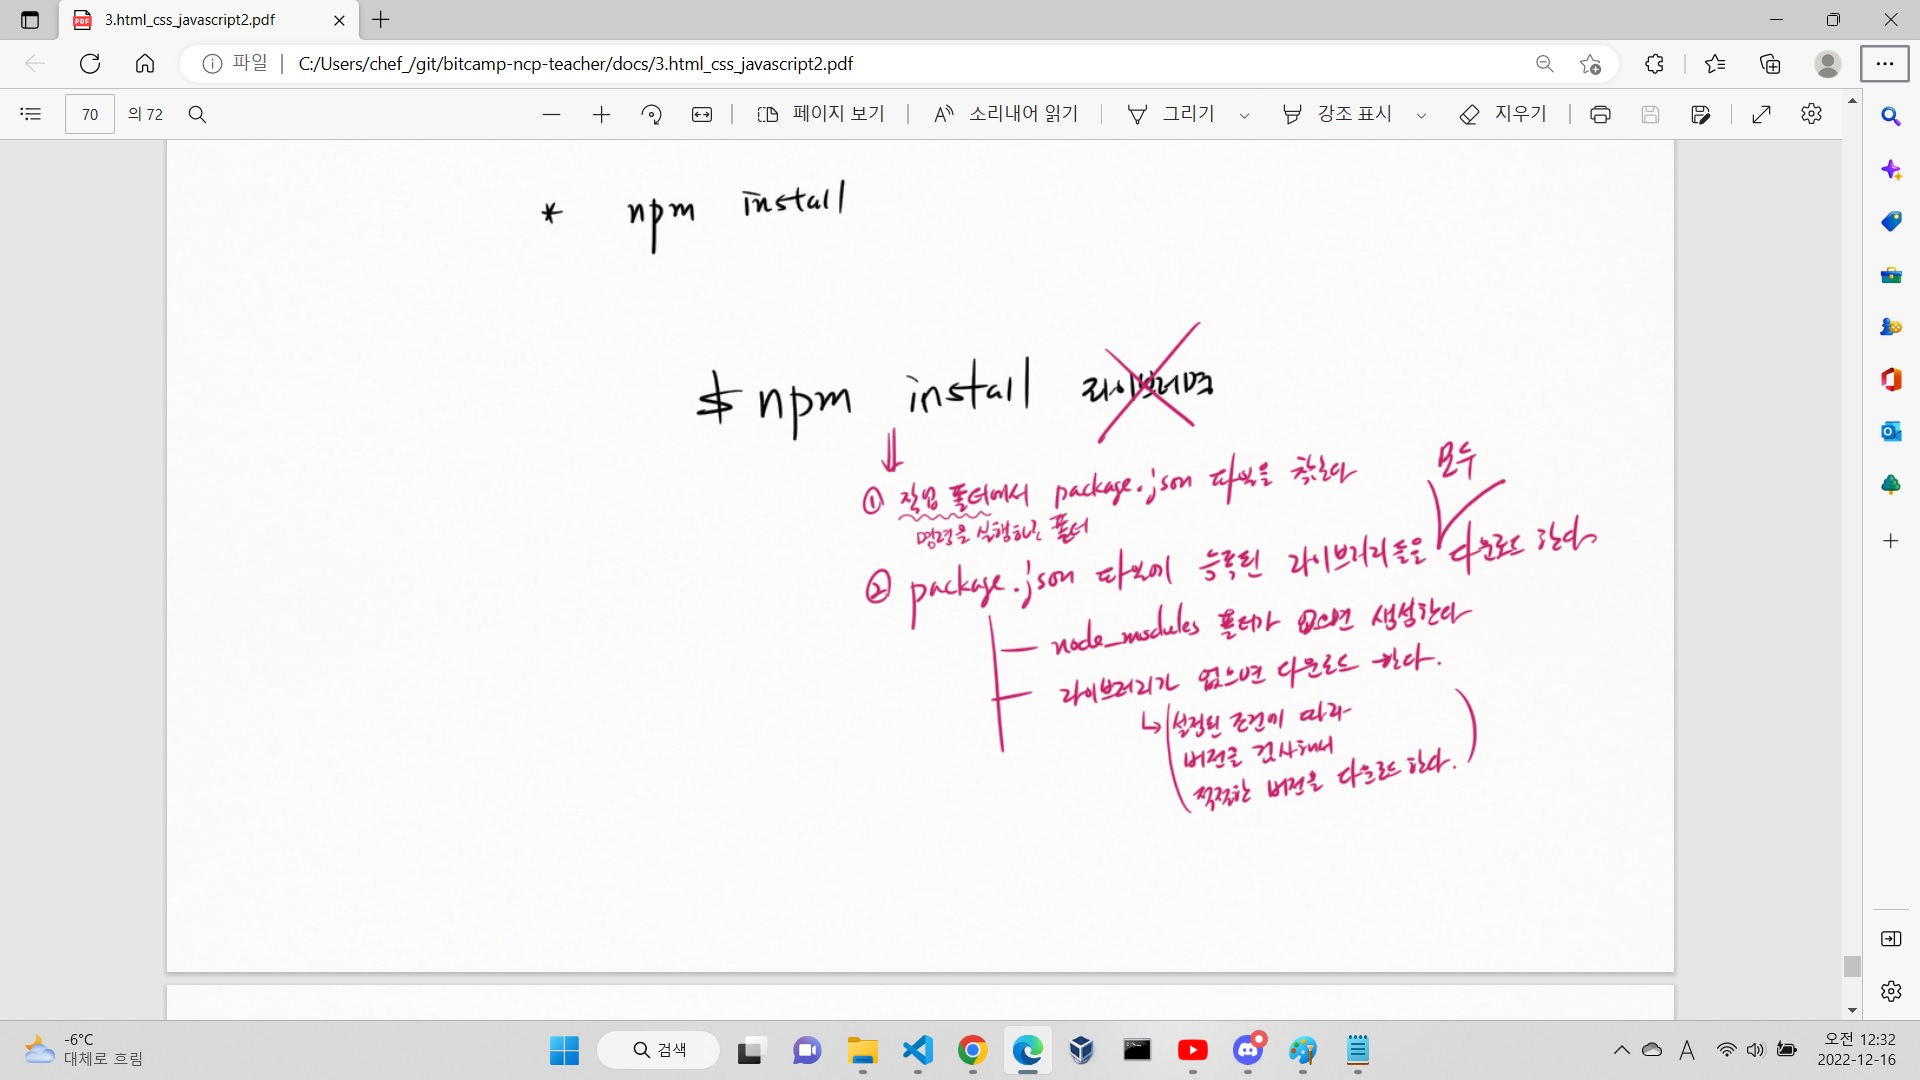 3.html_css_javascript2.pdf
파일
C:/Users/chef_/git/bitcamp-ncp-teacher/docs/3.html_css_javascript2.pdf
70 의 72
페이지 보기
소리내어 읽기
그리기
강조 표시
지우기
* npm install
$ npm install 라이브러리명
① 작업 폴더에서 package.json 파일을 찾는다
명령을 실행하는 폴더
모두
② package.json 파일에 등록된 라이브러리들을 다운로드 한다
node_modules 폴더가 없으면 생성한다
라이브러리가 없으면 다운로드 한다.
설정된 조건에 따라
버전을 검사해서
적절한 버전을 다운로드 한다.
-6°C
대체로 흐림
검색
A
오전 12:32
2022-12-16